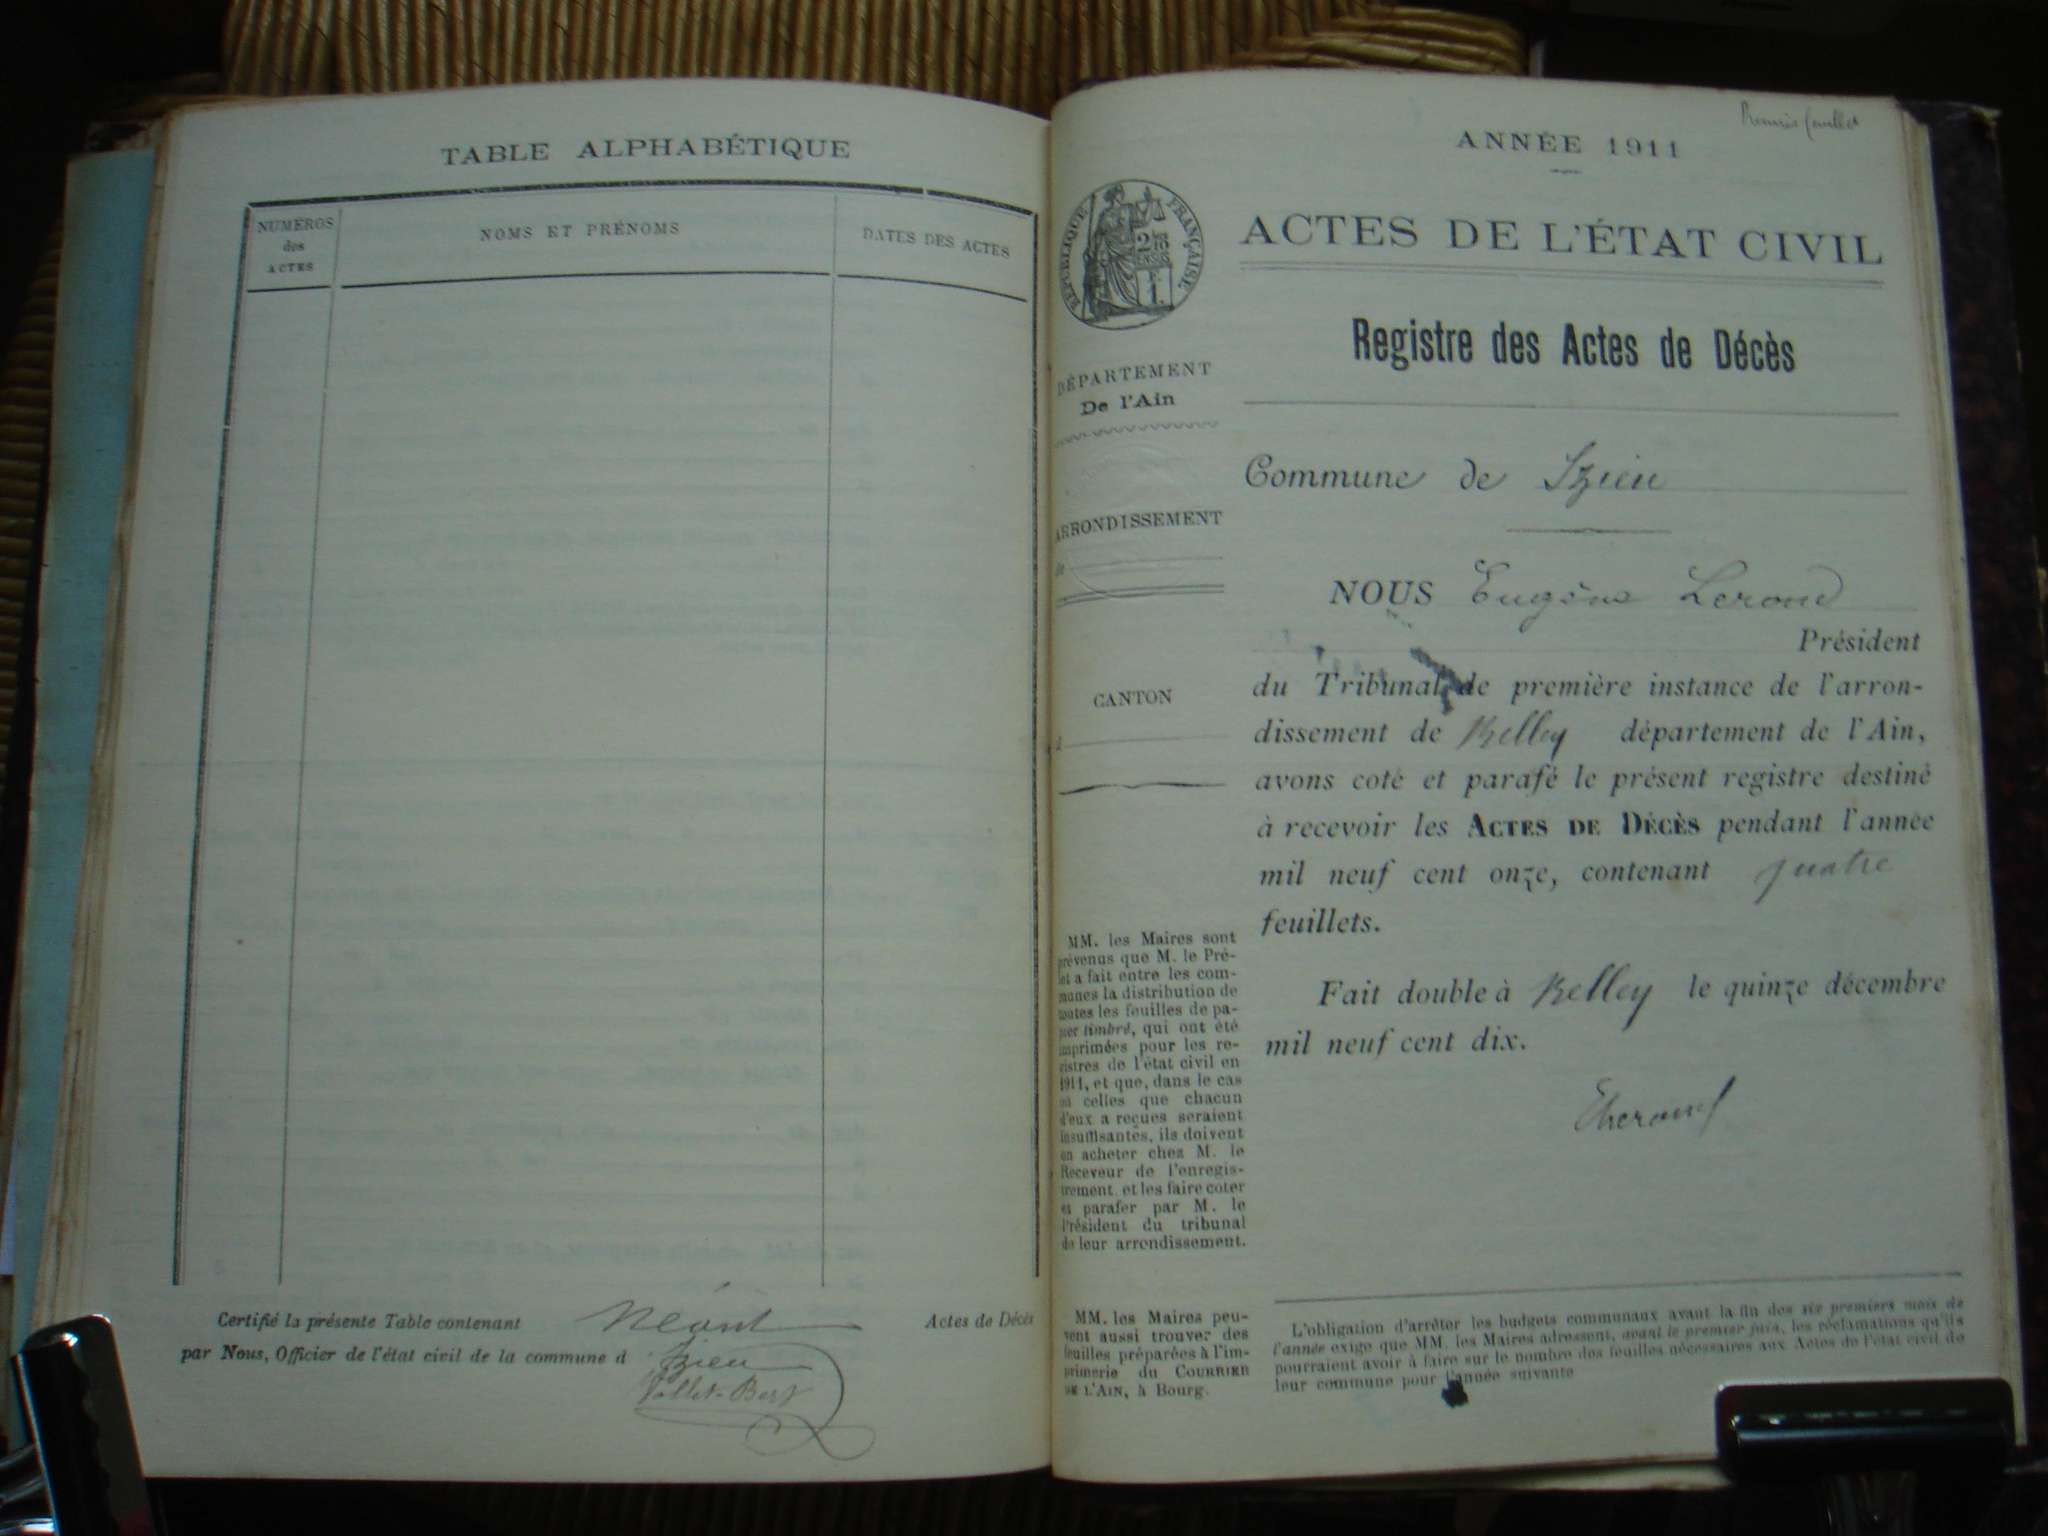 TABLE ALPHABÉTIQUE
NUMÉROS
des
ACTES
NOMS ET PRÉNOMS
DATES DES ACTES
Certifié la présente Table contenant Néant Actes de Décès
par Nous, Officier de l'état civil de la commune d Izieu
Premier feuillet
ANNÉE 1911
RÉPUBLIQUE FRANÇAISE
ACTES DE L'ÉTAT CIVIL
Registre des Actes de Décès
DÉPARTEMENT
De l'Ain
ARRONDISSEMENT
de
CANTON
MM. les Maires sont
prévenus que M. le Pré-
fet a fait entre les com-
munes la distribution de
toutes les feuilles de pa-
pier timbré, qui ont été
imprimées pour les re-
gistres de l'état civil en
1911, et que, dans le cas
où celles que chacun
d'eux a reçues seraient
insuffisantes, ils doivent
en acheter chez M. le
Receveur de l'enregis-
trement, et les faire coter
et parafer par M. le
Président du tribunal
de leur arrondissement.
MM. les Maires peu-
vent aussi trouver des
feuilles préparées à l'im-
primerie du COURRIER
DE L'AIN, à Bourg.
Commune de Izieu
NOUS Eugène Lerond
Président
du Tribunal de première instance de l'arron-
dissement de Belley département de l'Ain,
avons coté et parafé le présent registre destiné
à recevoir les ACTES DE DÉCÈS pendant l'année
mil neuf cent onze, contenant quatre
feuillets.
Fait double à Belley le quinze décembre
mil neuf cent dix.
L'obligation d'arrêter les budgets communaux avant la fin des six premiers mois de
l'année exige que MM. les Maires adressent, avant le premier juin, les réclamations qu'ils
pourraient avoir à faire sur le nombre des feuilles nécessaires aux Actes de l'état civil de
leur commune pour l'année suivante